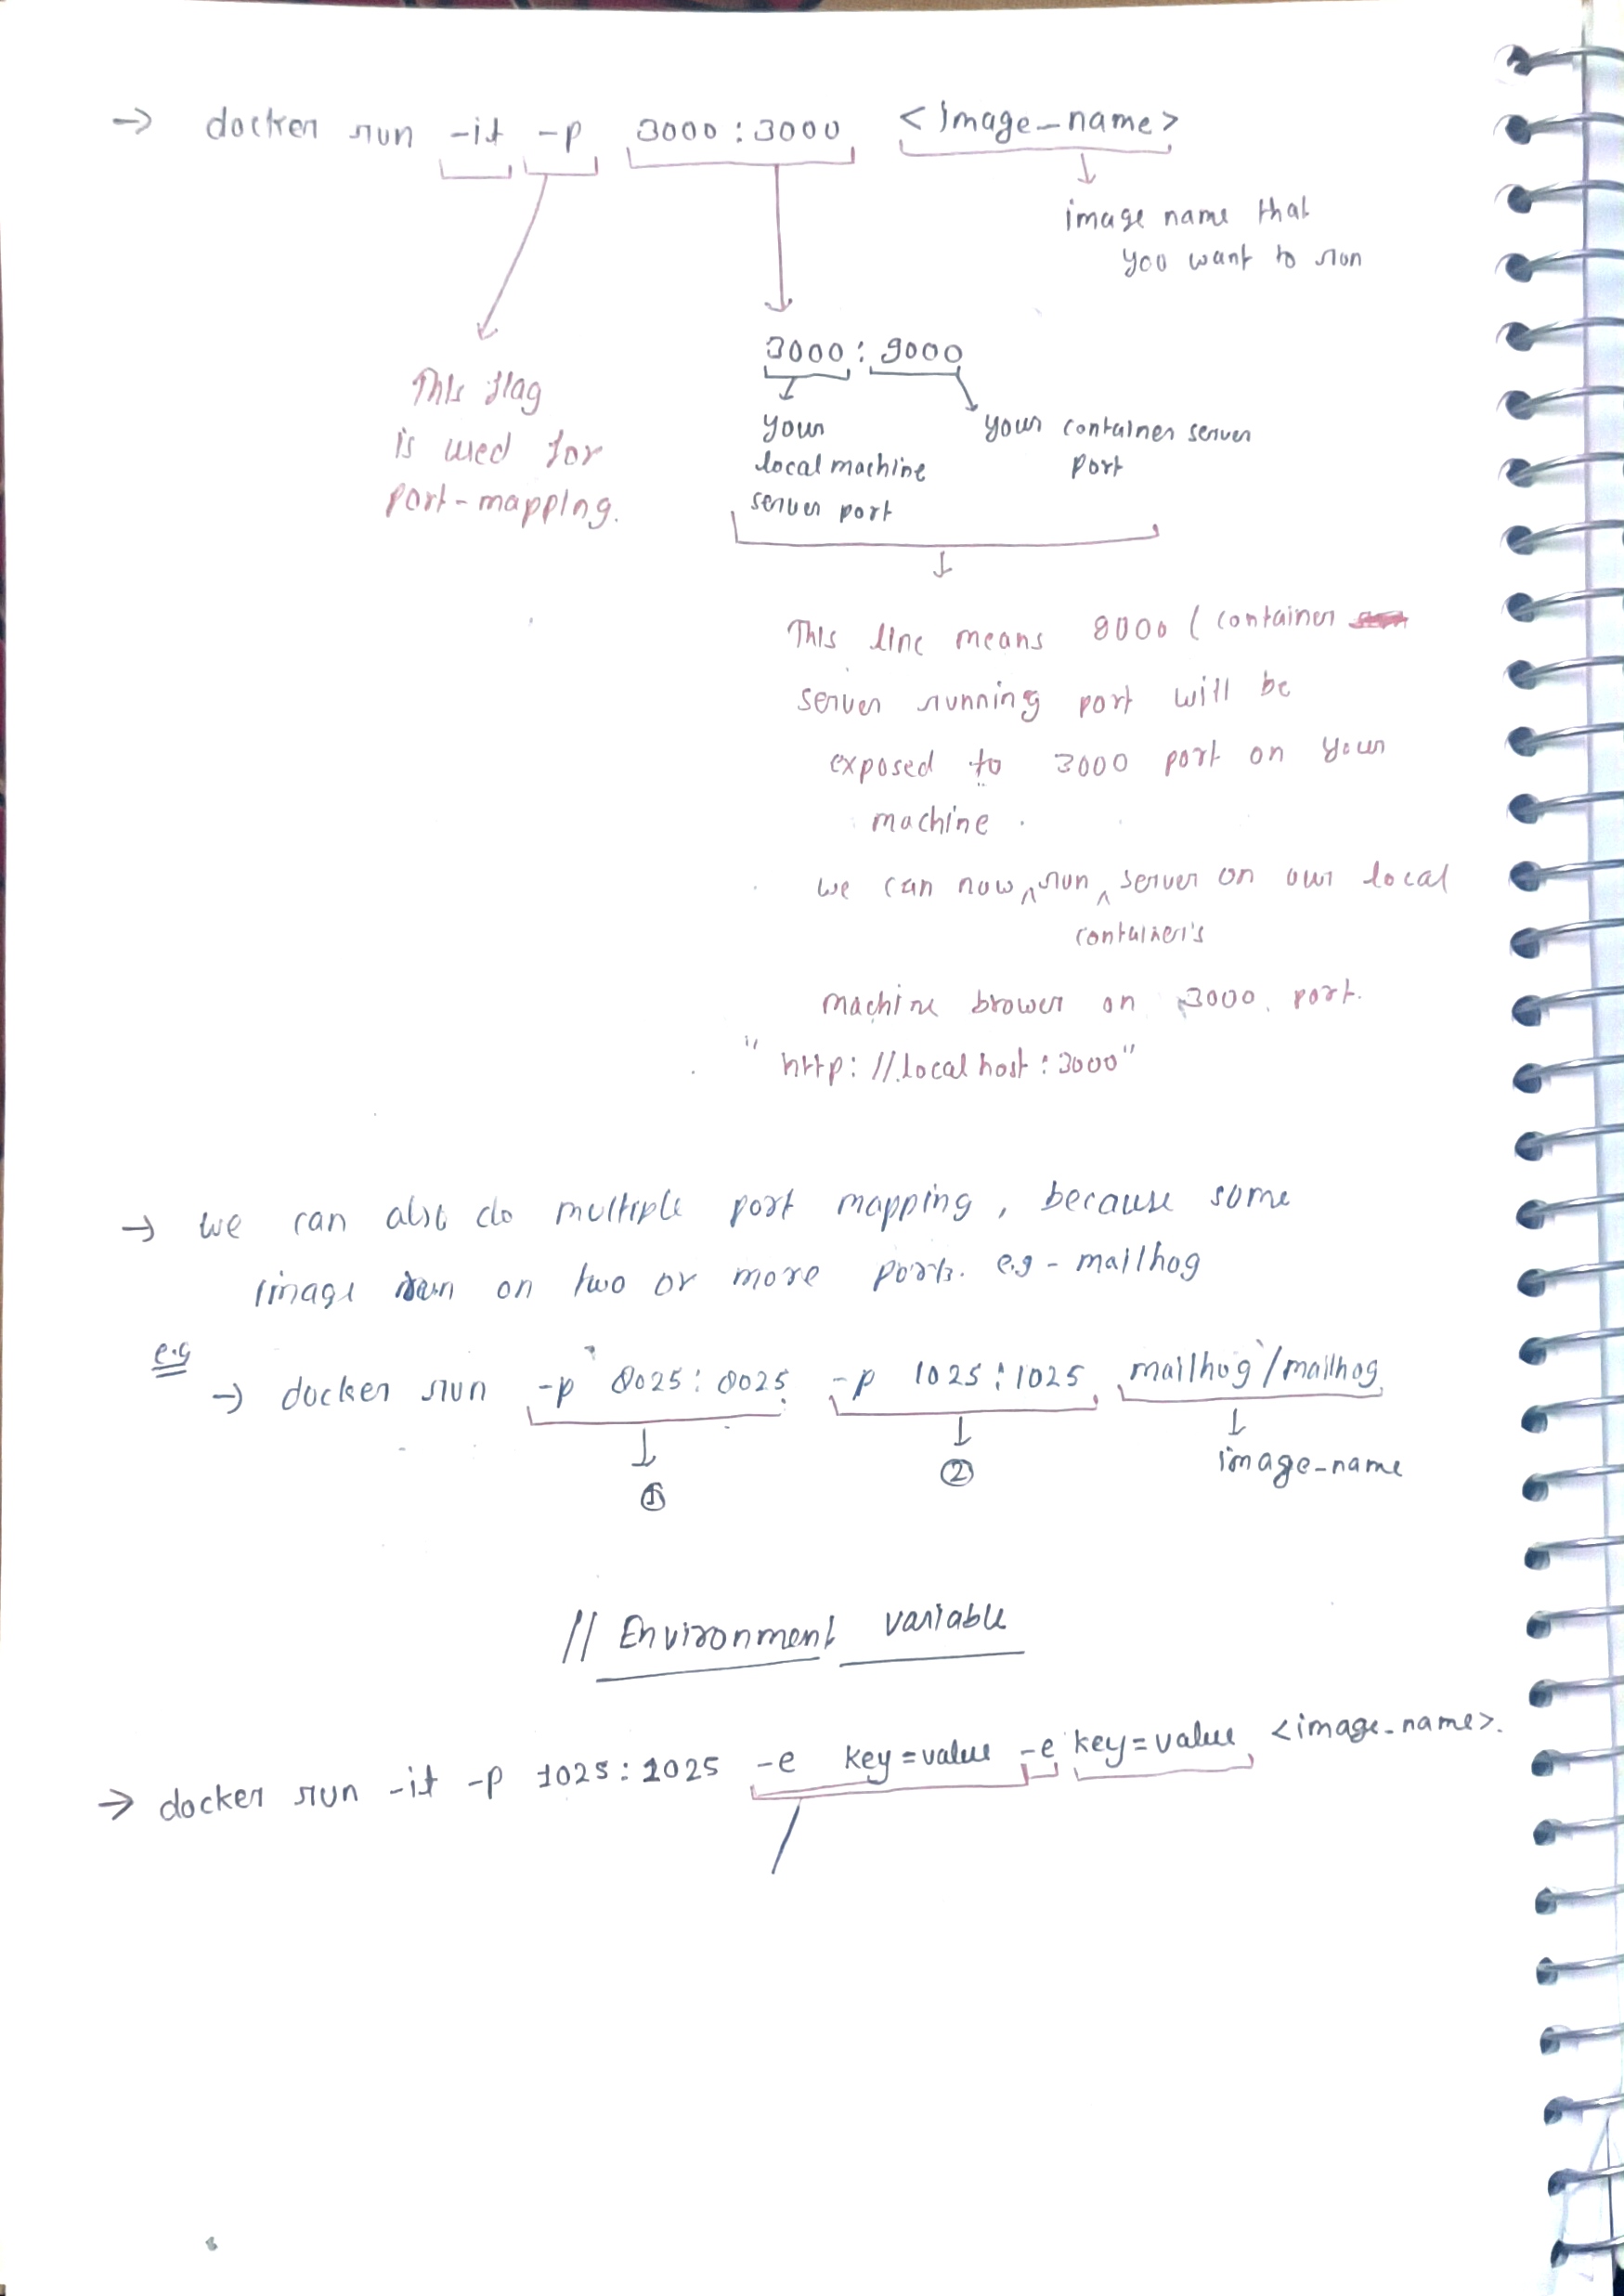 → docker run -it -p 3000:3000 <image_name>
↓
image name that
you want to run
This flag
is used for
port-mapping.
3000 : 9000
your
local machine
server port
your container server
port
↓
This line means 9000 (container
server running port will be
exposed to 3000 port on your
machine.
we can now run server on our local
container's
machine brower on 3000 port.
"http://localhost:3000"
→ we can also do multiple port mapping, because some
image run on two or more ports. e.g - mailhog
e.g
→ docker run -p 8025:8025 -p 1025:1025 mailhog/mailhog
↓ ↓ ↓
① ② image-name
// Environment variable
→ docker run -it -p 1025:1025 -e key=value -e key=value <image-name>.